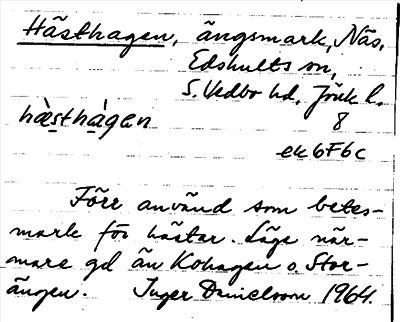 Hästhagen, ängsmark, Näs,
Edshults sn,
S. Vedbo hd, Jönk l.
hàsthàgen
8
ek 6F6c
Förr använd som betes-
mark för hästar. Läge när-
mare gd än Kohagen o. Stor-
ängen. Inger Danielsson 1964.